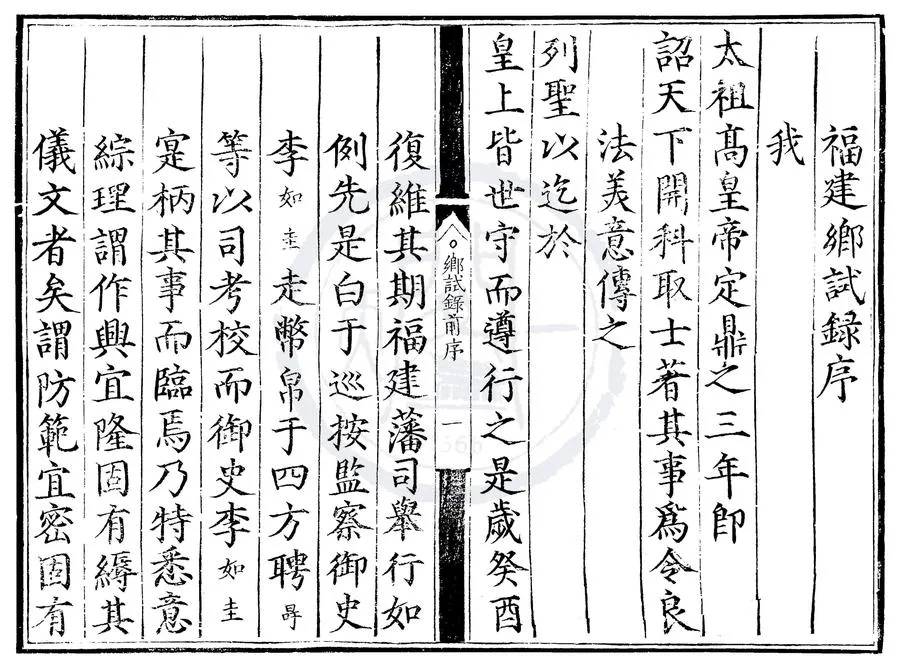 福建鄉試録序
我
太祖髙皇帝定鼎之三年即
詔天下開科取士著其事爲令良
法美意傳之
列聖以迄於
皇上皆世守而遵行之是歲癸酉
鄉試録前序 一
復維其期福建藩司舉行如
例先是白于巡按監察御史
李如圭走幣帛于四方聘
等以司考校而御史李如圭
寔柄其事而臨焉乃特悉意
綜理謂作興宜隆固有縟其
儀文者矣謂防範宜密固有